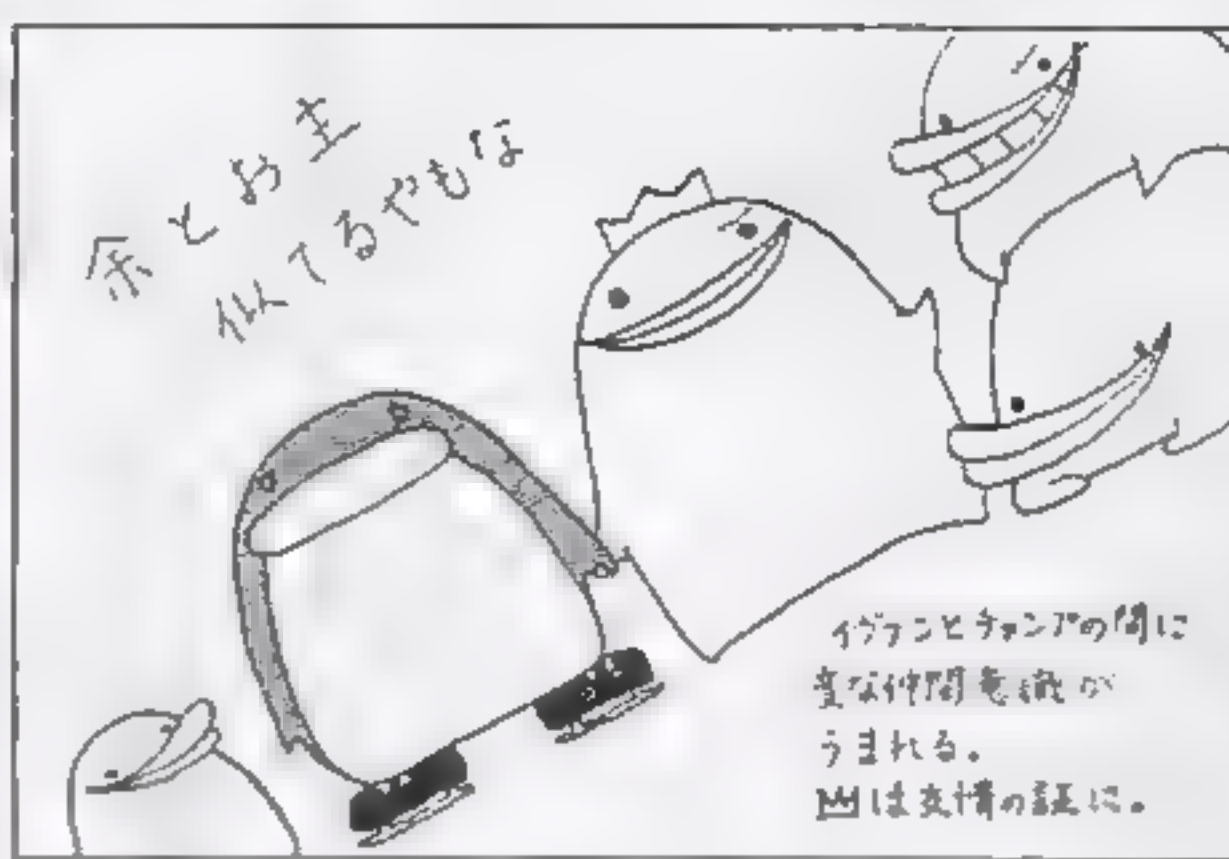 余とお主
似てるやもな
イヴァンとチャンプの間に
変な仲間意識が
うまれる。
は友情の証に。